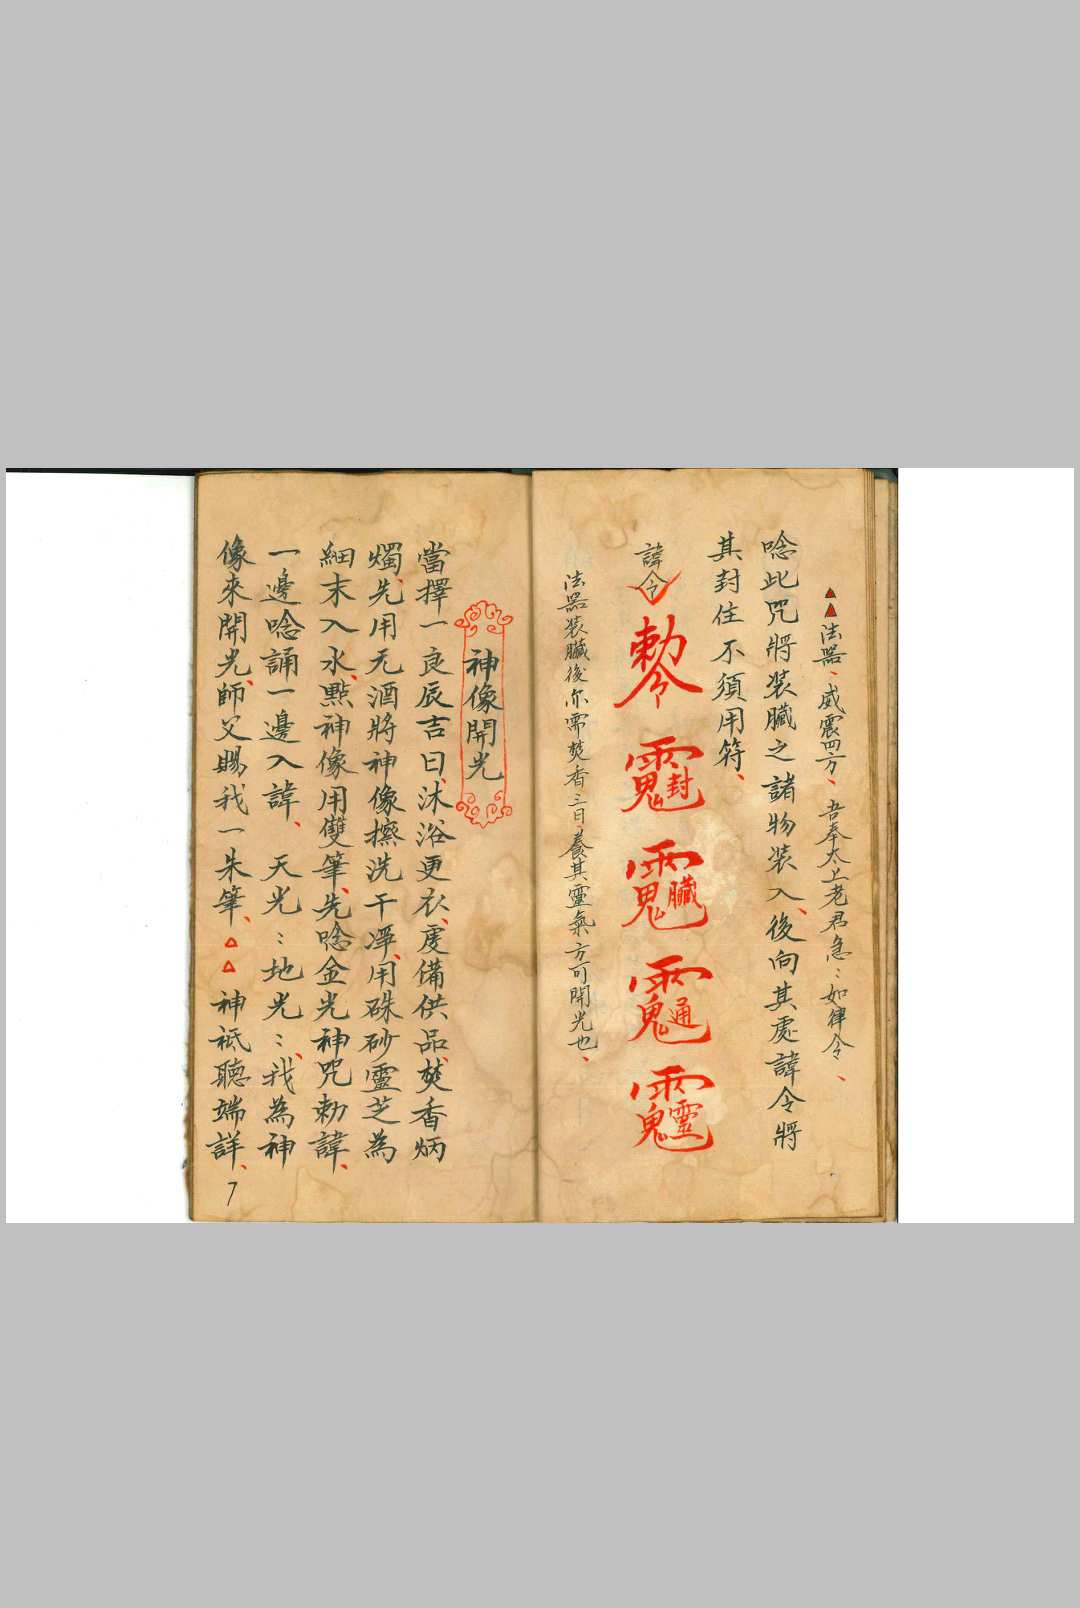 ▲▲法器、威震四方、吾奉太上老君急:如律令、
唸此咒將裝臟之諸物裝入、後向其處諱令將
其封住不須用符、
諱令
勅令
封
臟
通
靈
法器裝臟後亦需焚香三日、養其靈氣方可開光也、
神像開光
當擇一良辰吉日、沐浴更衣、虔備供品、焚香炳
燭、先用元酒將神像擦洗干凈、用硃砂靈芝為
細末入水、點神像用雙筆、先唸金光神咒勅諱、
一邊唸誦一邊入諱、天光:地光:、我為神
像來開光、師父賜我一朱筆、△△神祗聽端詳、
7